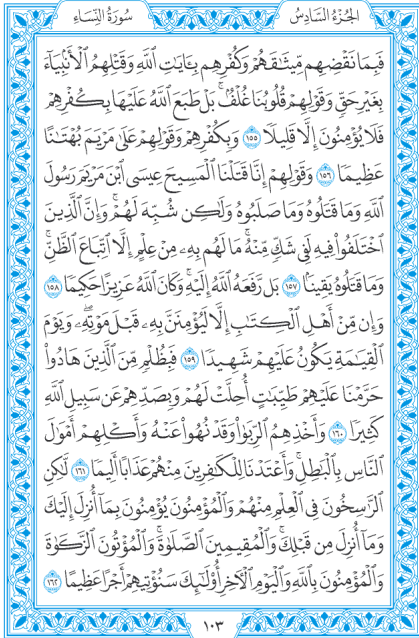 الجُزْءُ السَّادِسُ
سُورَةُ النِّسَاءِ
فَبِمَا نَقْضِهِم مِّيثَٰقَهُمْ وَكُفْرِهِم بِـَٔايَٰتِ ٱللَّهِ وَقَتْلِهِمُ ٱلْأَنۢبِيَآءَ
بِغَيْرِ حَقٍّ وَقَوْلِهِمْ قُلُوبُنَا غُلْفٌۢ ۚ بَلْ طَبَعَ ٱللَّهُ عَلَيْهَا بِكُفْرِهِمْ
فَلَا يُؤْمِنُونَ إِلَّا قَلِيلًا ١٥٥ وَبِكُفْرِهِمْ وَقَوْلِهِمْ عَلَىٰ مَرْيَمَ بُهْتَٰنًا
عَظِيمًا ١٥٦ وَقَوْلِهِمْ إِنَّا قَتَلْنَا ٱلْمَسِيحَ عِيسَى ٱبْنَ مَرْيَمَ رَسُولَ
ٱللَّهِ وَمَا قَتَلُوهُ وَمَا صَلَبُوهُ وَلَٰكِن شُبِّهَ لَهُمْ ۚ وَإِنَّ ٱلَّذِينَ
ٱخْتَلَفُوا۟ فِيهِ لَفِى شَكٍّ مِّنْهُ ۚ مَا لَهُم بِهِۦ مِنْ عِلْمٍ إِلَّا ٱتِّبَاعَ ٱلظَّنِّ ۚ
وَمَا قَتَلُوهُ يَقِينًۢا ١٥٧ بَل رَّفَعَهُ ٱللَّهُ إِلَيْهِ ۚ وَكَانَ ٱللَّهُ عَزِيزًا حَكِيمًا ١٥٨
وَإِن مِّنْ أَهْلِ ٱلْكِتَٰبِ إِلَّا لَيُؤْمِنَنَّ بِهِۦ قَبْلَ مَوْتِهِۦ ۖ وَيَوْمَ
ٱلْقِيَٰمَةِ يَكُونُ عَلَيْهِمْ شَهِيدًا ١٥٩ فَبِظُلْمٍ مِّنَ ٱلَّذِينَ هَادُوا۟
حَرَّمْنَا عَلَيْهِمْ طَيِّبَٰتٍ أُحِلَّتْ لَهُمْ وَبِصَدِّهِمْ عَن سَبِيلِ ٱللَّهِ
كَثِيرًا ١٦٠ وَأَخْذِهِمُ ٱلرِّبَوٰا۟ وَقَدْ نُهُوا۟ عَنْهُ وَأَكْلِهِمْ أَمْوَٰلَ
ٱلنَّاسِ بِٱلْبَٰطِلِ ۚ وَأَعْتَدْنَا لِلْكَٰفِرِينَ مِنْهُمْ عَذَابًا أَلِيمًا ١٦١ لَّٰكِنِ
ٱلرَّٰسِخُونَ فِى ٱلْعِلْمِ مِنْهُمْ وَٱلْمُؤْمِنُونَ يُؤْمِنُونَ بِمَآ أُنزِلَ إِلَيْكَ
وَمَآ أُنزِلَ مِن قَبْلِكَ ۚ وَٱلْمُقِيمِينَ ٱلصَّلَوٰةَ ۚ وَٱلْمُؤْتُونَ ٱلزَّكَوٰةَ
وَٱلْمُؤْمِنُونَ بِٱللَّهِ وَٱلْيَوْمِ ٱلْءَاخِرِ أُو۟لَٰٓئِكَ سَنُؤْتِيهِمْ أَجْرًا عَظِيمًا ١٦٢
١٠٣